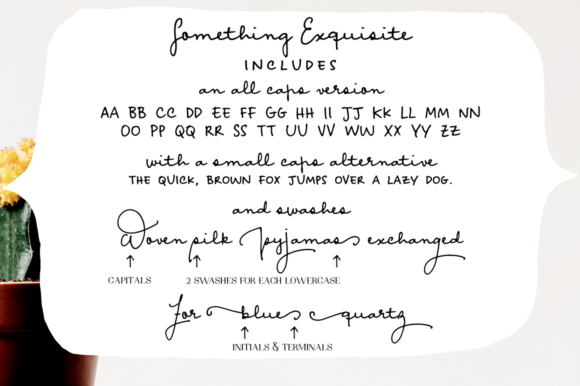 Something Exquisite
INCLUDES
an all caps version
AA BB CC DD EE FF GG HH II JJ KK LL MM NN
OO PP QQ RR SS TT UU VV WW XX YY ZZ
with a small caps alternative
THE QUICK, BROWN FOX JUMPS OVER A LAZY DOG.
and swashes
Woven silk pyjamas exchanged
CAPITALS 2 SWASHES FOR EACH LOWERCASE
for blue quartz
INITIALS & TERMINALS